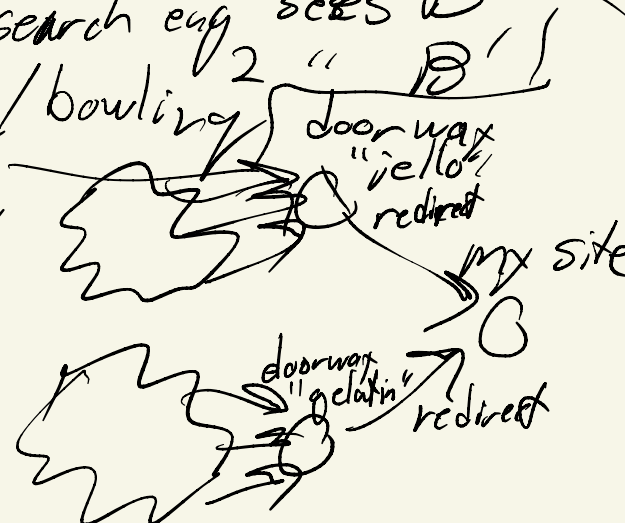 search eng sees
2 " B "
/bowling
doorway
"jello"
redirect
my site
doorway
"gelatin"
redirect